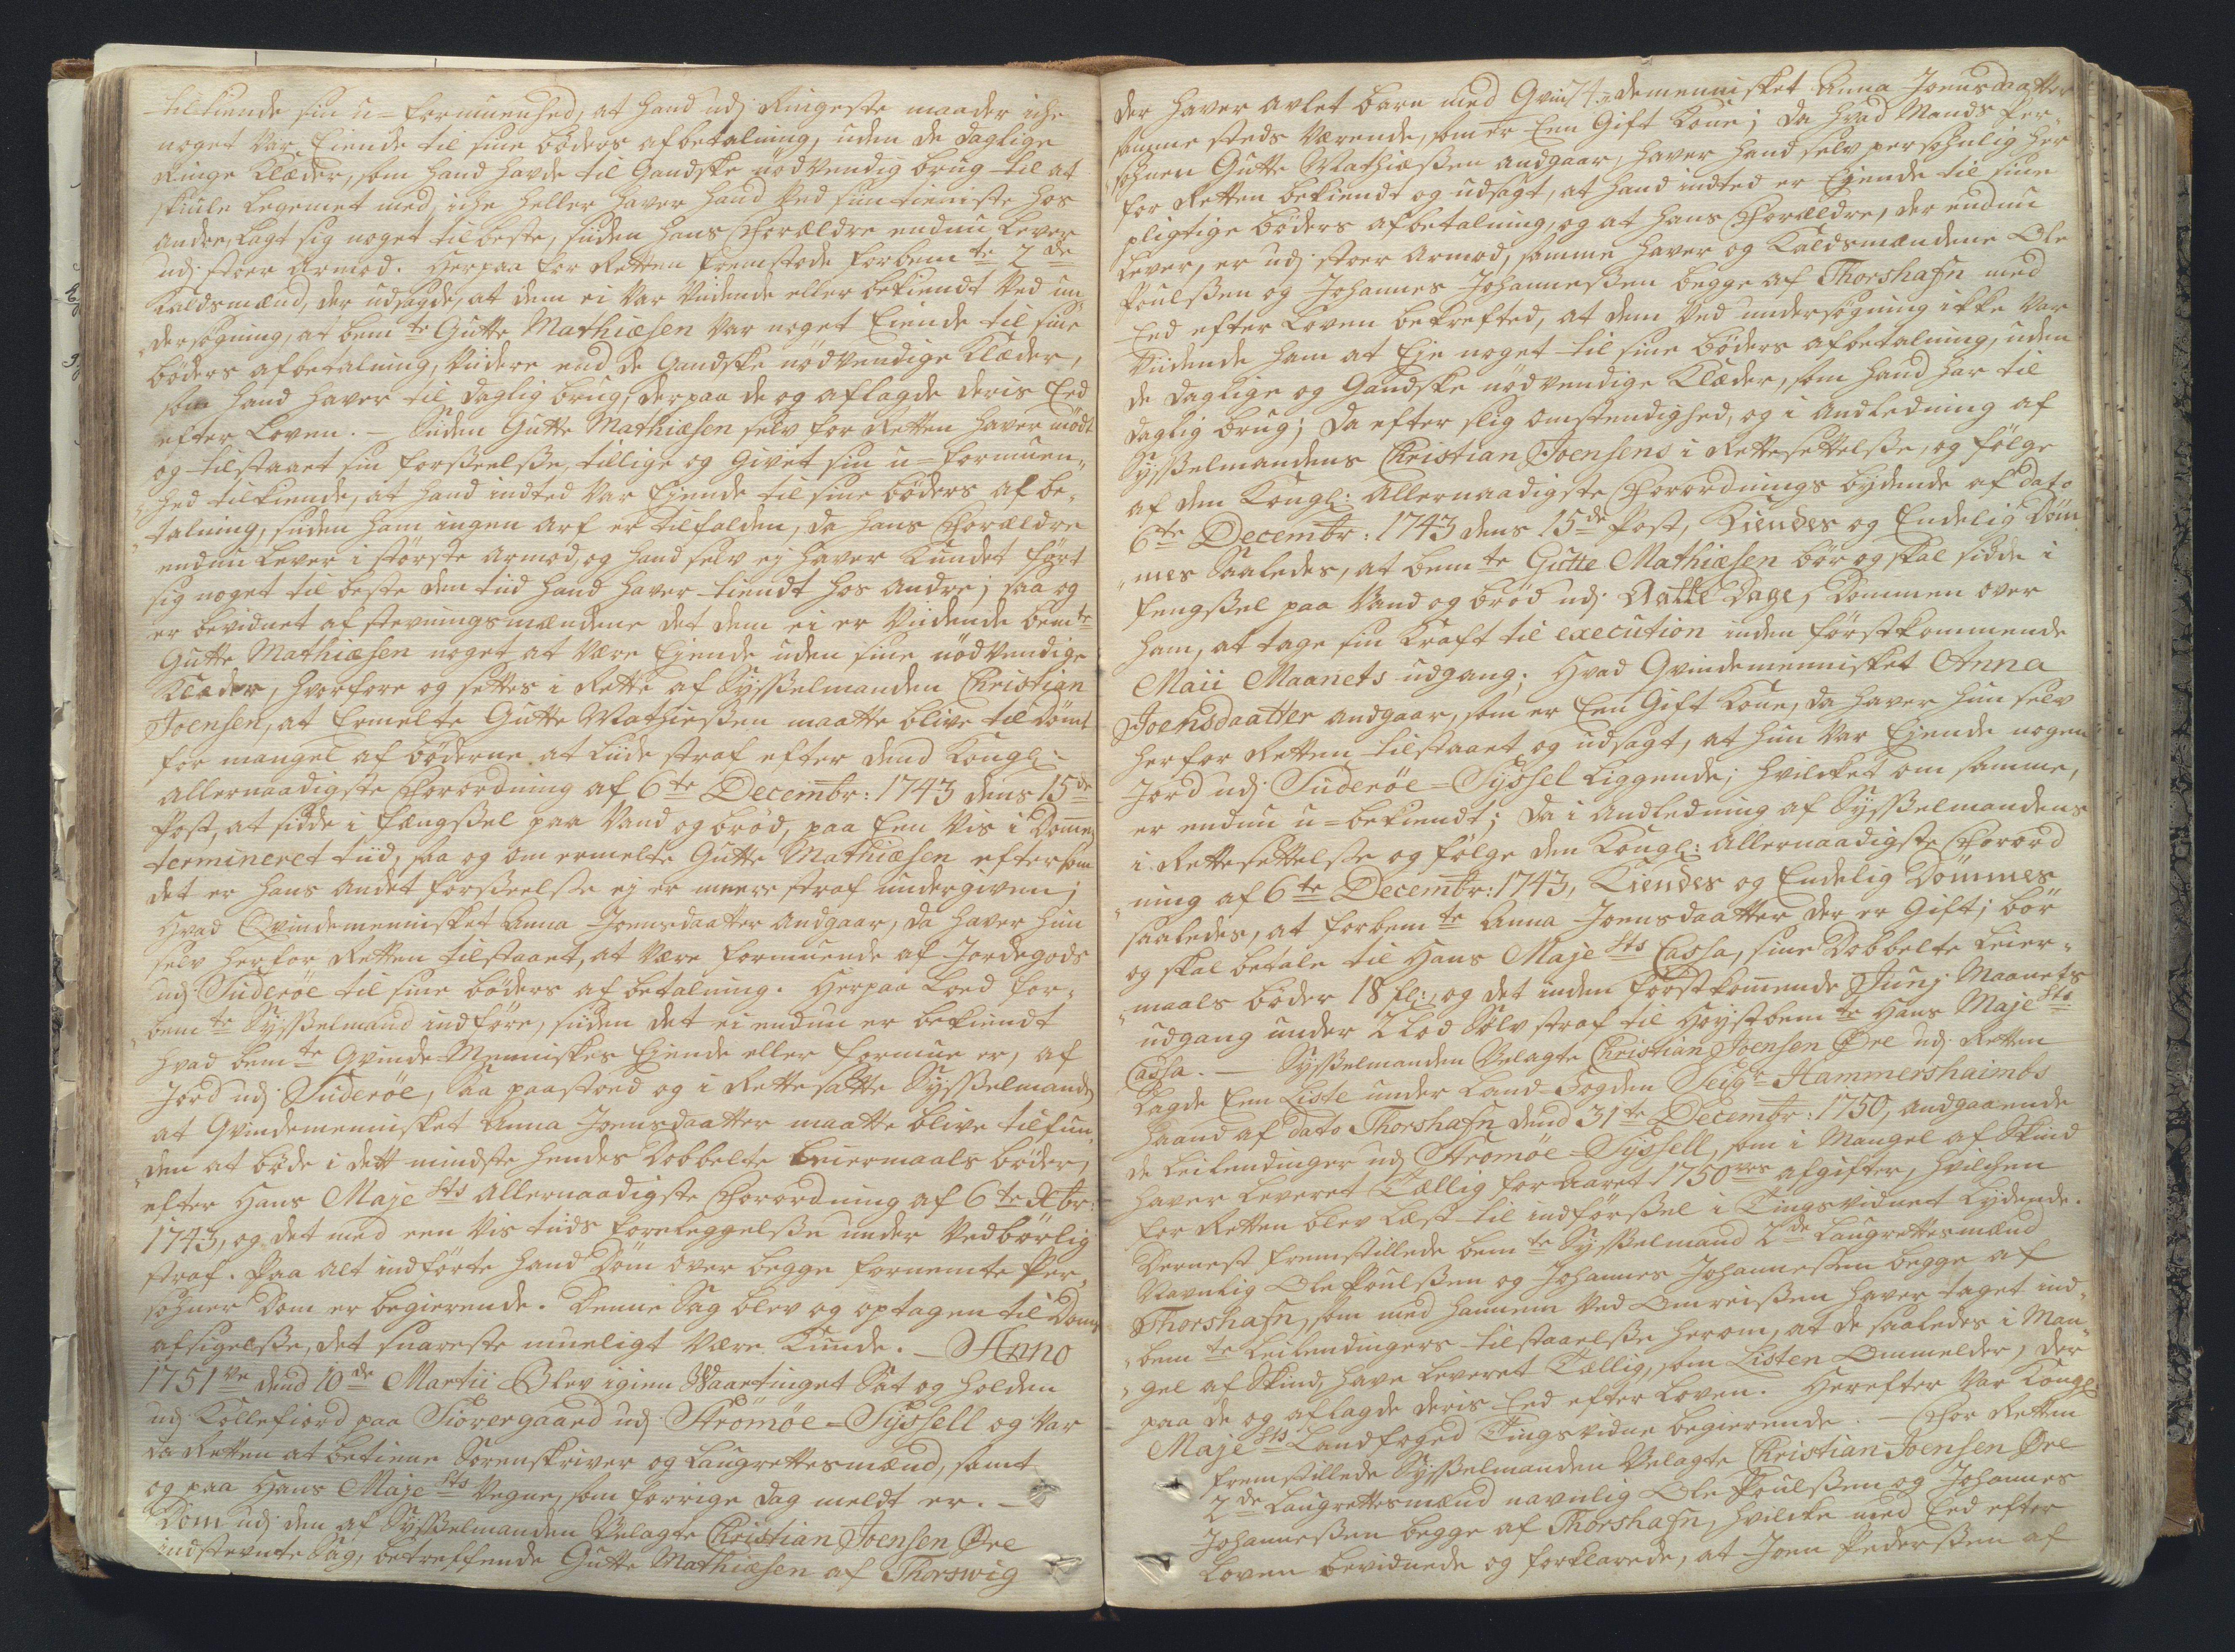 tilkiende sin u-formuenhed, at hand udj Ringeste maader iche
noget var Eiende til sine böders afbetalning, uden de daglige
Ringe Klæder, som hand havde til Gandske nödvendig brug til at
skiule Legemet med, iche heller haver hand ved sin tieniste hos
andre, Lagt sig noget til beste, siiden hans Forældre endnu Lever
udj stoer Armod. Herpaa for Retten fremstode forbemte 2de
Kaldsmænd, der udsagde, at dem ei var Viidende eller bekiendt ved un„
„dersøgning, at bemte Gutte Mathiæsen var noget Eiende til sine
böders afbetalning, Viidere end de Gandske nödvendige Klæder,
som hand haver til daglig brug; derpaa de og aflagde deris Eed
efter Loven. — Siiden Gutte Mathiæsen selv for Retten haver mödt
og tilstaaet sin forseelsse, tillige og Givet sin u-formuen„
„hed tilkiende, at hand indted var Ejende til sine böders afbe„
„talning, siiden ham ingen Arf er tilfalden, da hans Forældre
endnu Lever i störste Armod, og hand selv ej haver Kundet Fört
sig noget til beste den tiid hand haver tiendt hos andre; saa og
er bevidnet af stevningsmændene det dem ei er Viidende bemte
Gutte Mathiæsen noget at være Ejende uden sine nödvendige
Klæder, hvorfore og settes i Rette af Sysselmanden Christian
Joensen, at Ermelte Gutte Mathiessen maatte blive tildömt
for mangel af böderne at Liide straf efter dend Kongl:
allernaadigste Forordning af 6te Decembr: 1743 dens 15de
Post, at sidde i fængssel paa Vand og bröd, paa Een vis i Dommen
termineret tiid, saa og om ermelte Gutte Mathiæsen eftersom
det er hans andet forseelsse ej er meere straf undergiven;
Hvad Qvindemennisket Anna Joensdaatter andgaar, da haver hun
selv herfor Retten tilstaaet, at være formuende af Jordegods
udj Suderöe til sine böders afbetalning. Herpaa Loed for„
„bemte Sysselmand indföre, siiden det ei endnu er bekiendt
hvad bemte Qvinde-Menniskes Ejende eller formue er, af
Jord udj Suderöe, Saa paastoed og i Rettesatte Sysselmanden
at Qvindemennisket Anna Joensdaatter maatte blive tilfun„
„den at böde i dett mindste hendes Dobbelte Leiermaals böder,
efter Hans Majesds allernaadigste Forordning af 6te Xbr:
1743, og det med een vis tiids foreleggelsse under vedbörlig
straf. Paa alt indförte hand Dom over begge fornemte Per„
„sohner Dom er begierende. Denne Sag blev og optagen til Doms
afsigelsse, det snareste mueligt være kunde. — Anno
1751ve dend 10de Martii Blev igien Vaartinget Sat og holden
udj Kollefiord paa Siovergaard udj Strömöe-Syssell og var
da Retten at betiene Sorenskriver og Laugrettesmænd, samt
og paa Hans Majesds Vegne, som forrige dag meldt er. —
Dom udj den af Sysselmanden Velagte Christian Joensen Øre
indstevnte Sag, betreffende Gutte Mathiæsen af Thorswig
der haver avlet barn med Qvindemennisket Anna Joensdaatter
74.
sammesteds værende, som er Een Gift Kone; da hvad Mands Per„
„sohnen Gutte Mathiæssen andgaar, haver hand selv personlig her
for Retten bekiendt og udsagt, at hand indted er Ejende til sine
pligtige böders afbetalning, og at hans Forældre, der endnu
Lever, er udj stoer Armod, samme haver og Kaldsmændene Ole
Poulssen og Johannes Johannessen begge af Thorshafn med
Eed efter Loven bekrefted, at dem ved undersögning ikke var
Viidende ham at Eje noget til sine böders afbetalning, uden
de daglige og Gandske nödvendige Klæder, som hand har til
daglig brug; da efter slig omstendighed, og i Andledning af
Sysselmandens Christian Joensens i Rettesettelsse, og fölge
af den Kongl: Allernaadigste Forordnings bydende af dato
6te Decembr: 1743 dens 15de Post, Kiendes og Endelig Döm
„mes Saaledes, at bemte Gutte Mathiæsen bör og skal sidde i
fengssel paa Vand og bröd udj Aatte Dage, Dommen over
ham, at tage sin Kraft til execution inden förstkommende
Maii Maanets udgang; Hvad Qvindemennisket Anna
Joensdaatter andgaar, som er Een Gift Kone, da haver hun selv
herfor Retten tilstaaet og udsagt, at hun var Ejende nogen
Jord udj Suderöe-Syssel Liggende; hvilcket om samme,
er endnu u-bekiendt; da i Andledning af Sysselmandens
i Rettesettelsse og fölge den Kongl: Allernaadigste Forord
„ning af 6te Decembr: 1743, Kiendes og Endelig Dömmes
saaledes, at forbemte Anna Joensdaatter der er Gift; bör
og skal betale til Hans Majesds Cassa, sine Dobbelte Leier„
„maals böder 18 fl:, og det inden förstkommende Junj Maanets
udgang under 2 Lod Sölv straf til Höystbemte Hans Majesds
Cassa. — Sysselmanden Velagte Christian Joensen Øre udj Retten
Lagde Een Liste under Land-Fogden Seigr Hammershaimbs
haand af dato Thorshafn dend 31te Decembr: 1750, andgaaende
de Leilendinger udj Strömöe-Syssell, som i Mangel af Skind
haver Leveret Tællig for Aaret 1750ves afgifter, hvilchen
for Retten blev Læst til indförssel i Tingsvidnet Lydende.
Dernest fremstillede bemte Sysselmand 2de Laugrettesmænd
Navnlig Ole Poulssen og Johannes Johannessen begge af
Thorshafn, som med hannem ved Omreissen haver taget ind„
„bemte Leilendingers tilstaaelsse herom, at de saaledes i Man„
„gel af Skind, have Leveret Tællig, som Listen Ommelder, der
paa de og aflagde deris Eed efter Loven. Herefter var Kongl
Majesds Landfoged Tingsvidne begierende. — For Retten
fremstillede Sysselmanden Velagte Christian Joensen Øre
2de Laugrettesmænd navnlig Ole Poulssen og Johannes
Johannessen begge af Thorshafn, hvilcke med Eed efter
Loven bevidnede og forklarede, at Joen Pederssen af